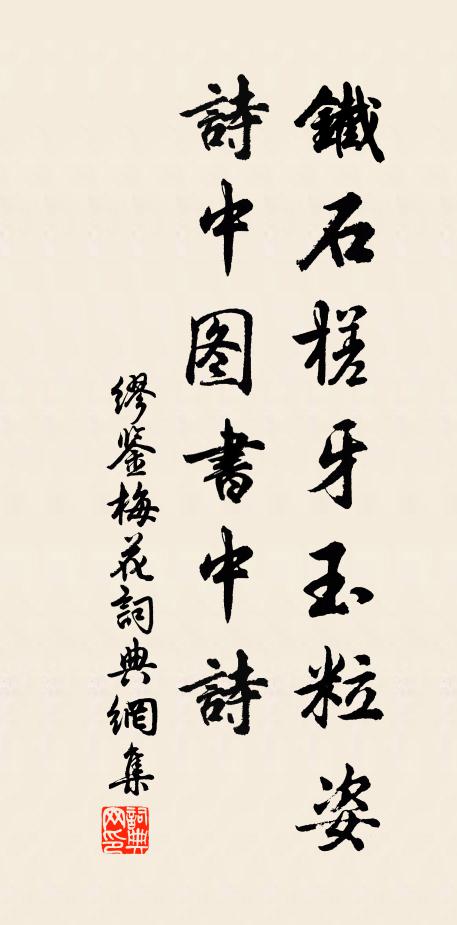 鐵石槎牙玉粒姿
詩中图書中詩
繆鉴梅花詞典網集
詞典网印